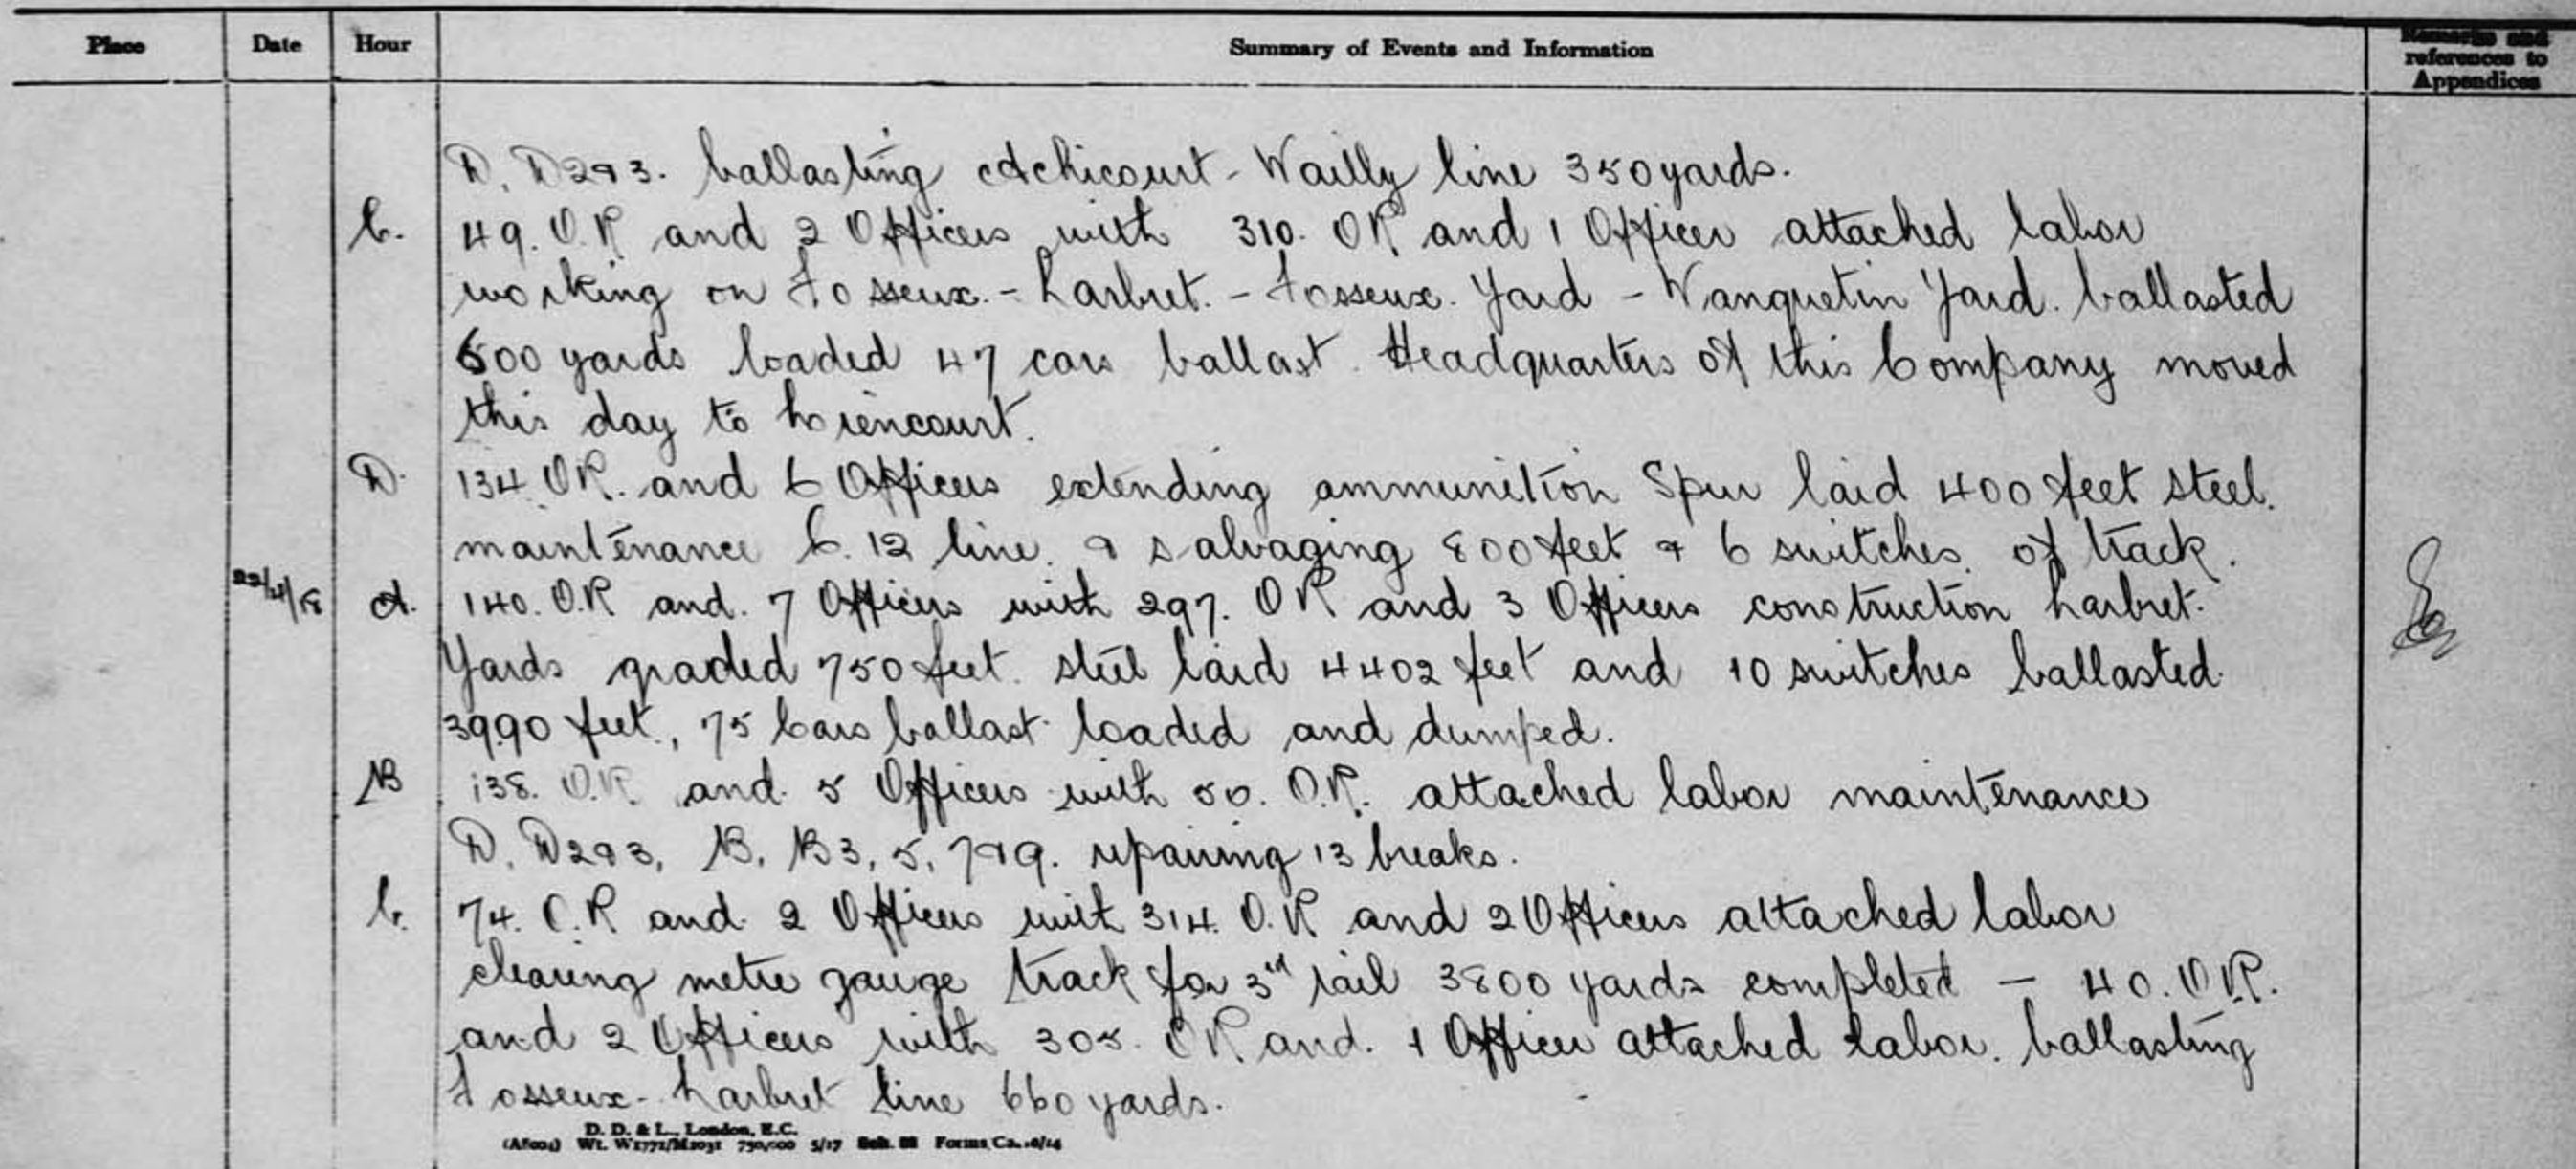 Place Date Hour Summary of Events and Information Remarks and references to Appendices
D. D2&3. ballasting Achicourt - Wailly line 350 yards.
C. 49. O.R and 2 Officers with 310. OR and 1 Officer attached labor
working on Fosseux. - Larbret. - Fosseux. Yard - Wanquetin Yard. ballasted
600 yards loaded 47 cars ballast. Headquarters of this Company moved
this day to Liencourt.
D. 134. O.R. and 6 Officers extending ammunition Spur laid 400 feet steel.
maintenance C. 12 line. & salvaging 800 feet & 6 switches. of track.
22/4/18 A. 140. O.R and. 7 Officers with 297. OR and 3 Officers construction Larbret.
Yards graded 750 feet. steel laid 4402 feet and 10 switches ballasted
3990 feet., 75 Cars ballast loaded and dumped.
B 138. O.R. and. 5 Officers with 50. O.R. attached labor maintenance
D. D2&3, B. B3, 5, 7&9. repairing 13 breaks.
C. 74. O.R and. 2 Officers with 314. O.R and 2 Officers attached labor
clearing metre gauge track for 3rd rail 3800 yards completed - 40. O.R.
and 2 Officers with 305. OR and. 1 Officer attached labor. ballasting
Fosseux - Larbret line 660 yards.
D. D. & L., London, E.C.
Wt. W1771/M2031 750,000 5/17 Forms